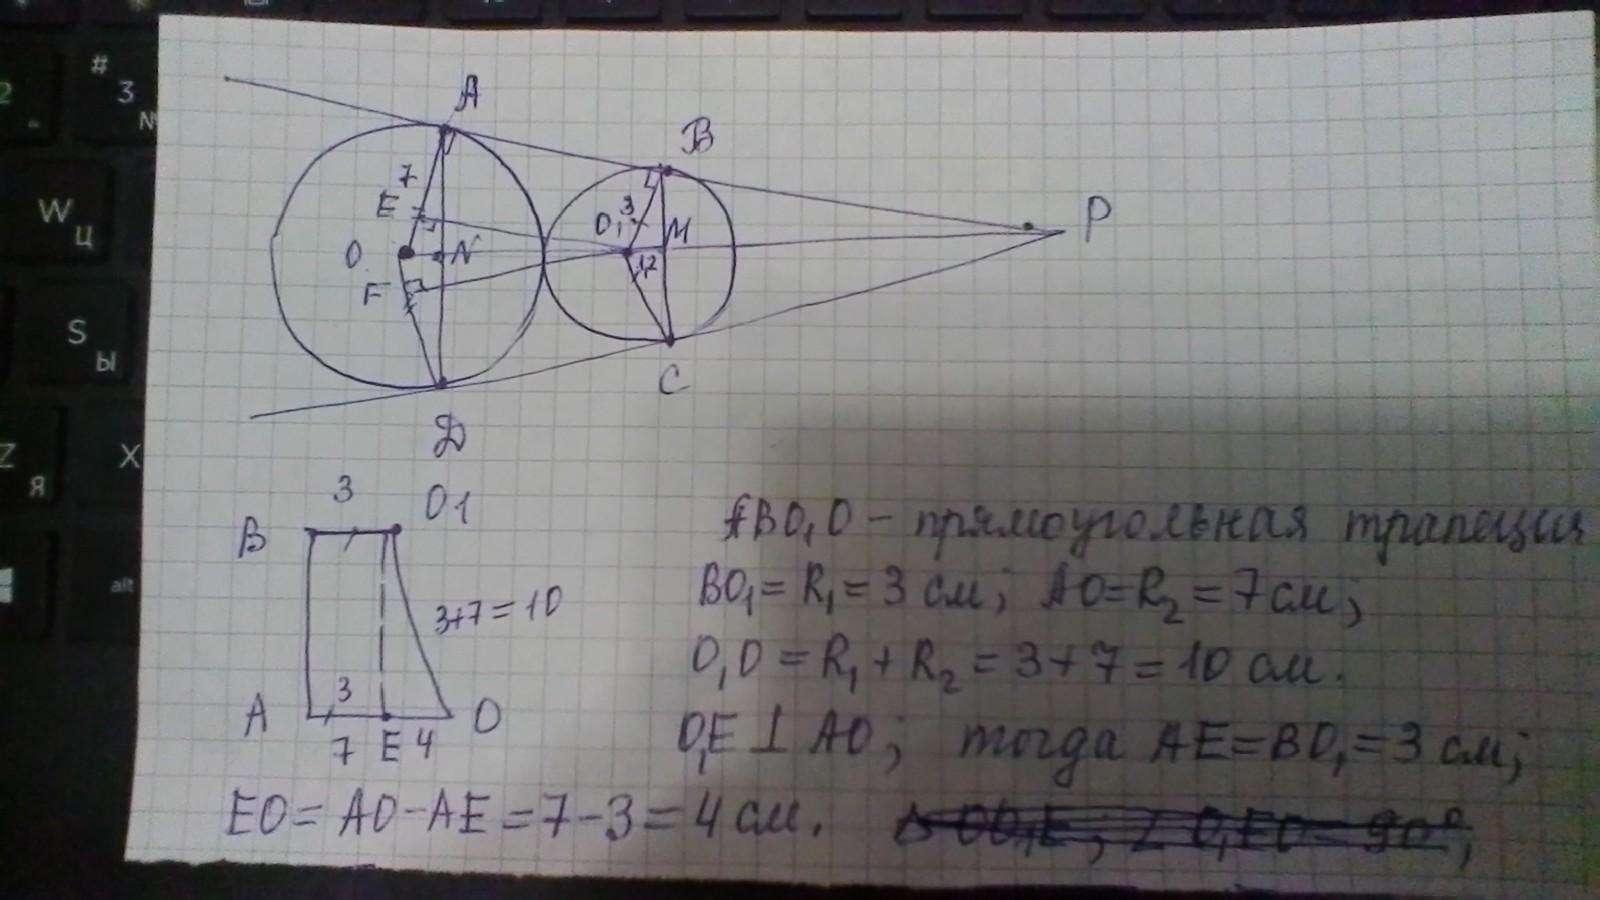 #
3
№
2
W
Ц
S
Ы
Z
Я
X
alt
A
B
7
E
3
O1
M
P
O
N
1,2
F
C
D
3
O1
B
3+7=10
3
A
O
7 E 4
ABO1O - прямоугольная трапеция
BO1 = R1 = 3 см; AO = R2 = 7 см;
O1O = R1 + R2 = 3 + 7 = 10 см.
O1E ⊥ AO; тогда AE = BO1 = 3 см;
EO = AO - AE = 7 - 3 = 4 см. Δ OO1E; ∠ O1EO = 90°;